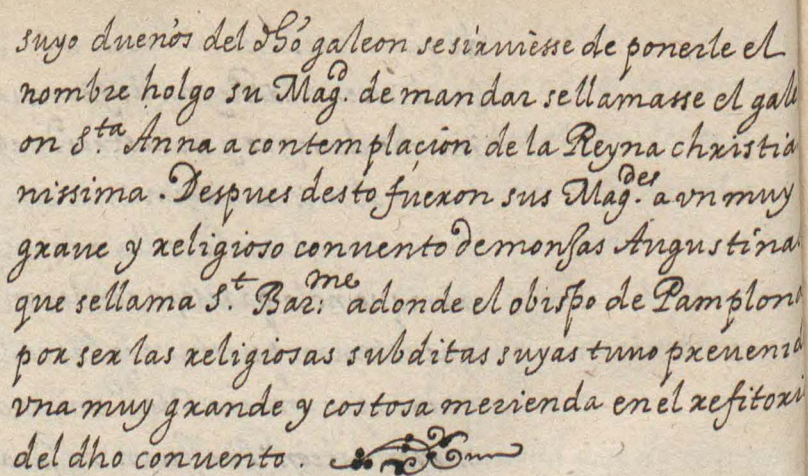 suyo duenos del dho galeon sesirviesse de ponerle el
nombre holgo su Magd. de mandar sellamasse el gale
on S.ta Anna a contemplaçion de la Reyna christia
nissima . Despues desto fueron sus Mag.des a vn muy
graue y religioso conuento demonjas Augustinas
que sellama S.t Bar.me adonde el obispo de Pamplona
por ser las religiosas subditas suyas tuuo preuenida
vna muy grande y costosa merienda enel refitori
del dho conuento .